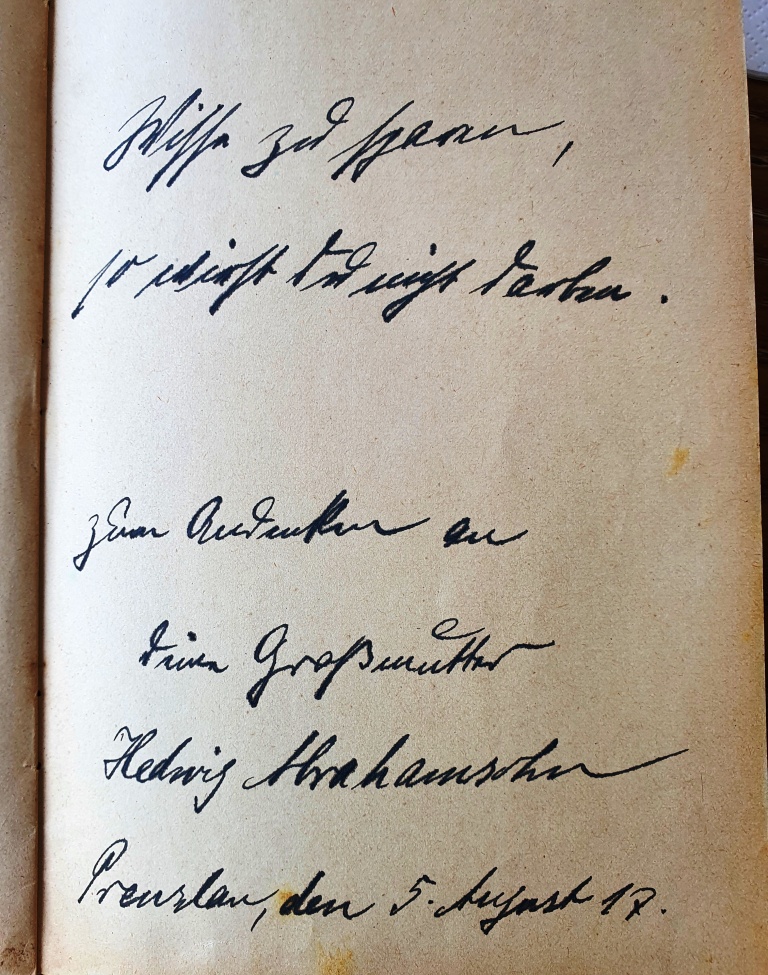 Wisse zu sparen,
so wirst Du nicht darben.
zum Andenken an
deine Großmutter
Hedwig Abrahamsohn
Prenzlau, den 5. August 17.